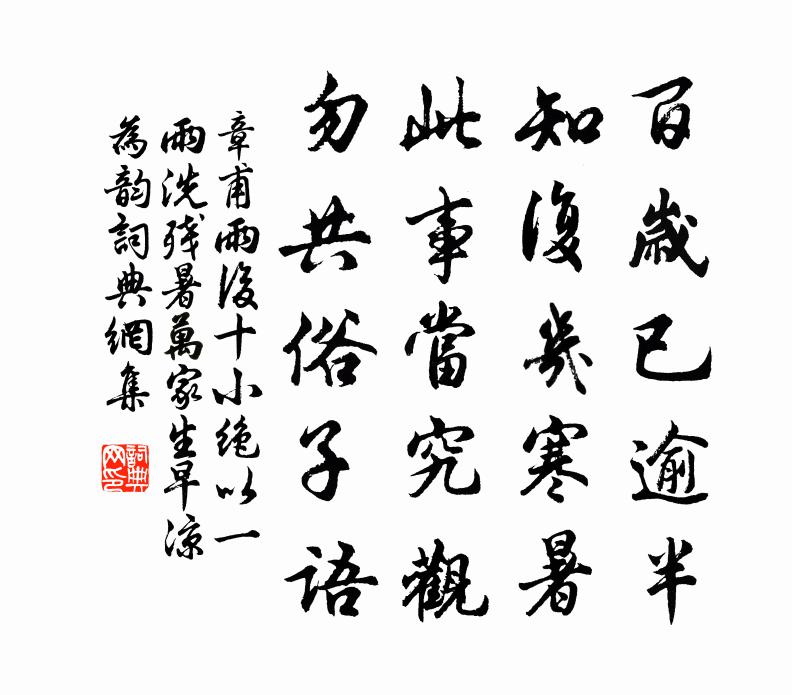 百歲已逾半
知復幾寒暑
此事當究觀
勿共俗子語
章甫雨後十小絶以一
雨洗殘暑萬家生早凉
為韵詞典網集
詞典網印